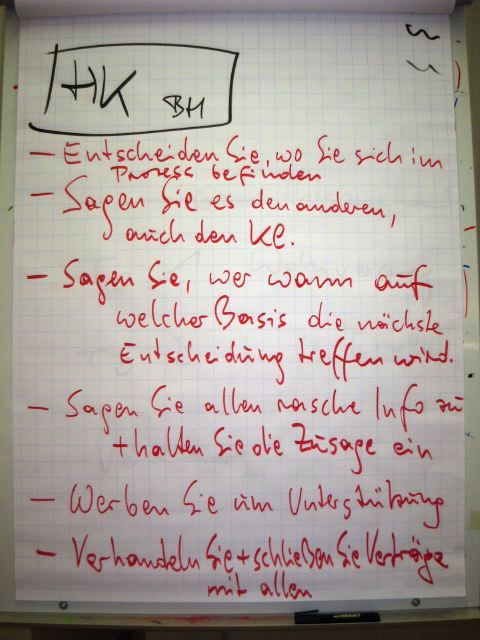 HK BH
– Entscheiden Sie, wo Sie sich im
Prozess befinden
– Sagen Sie es den anderen,
auch den Kl.
– Sagen Sie, wer wann auf
welcher Basis die nächste
Entscheidung treffen wird.
– Sagen Sie allen rasche Info zu
+ halten Sie die Zusage ein
– Werben Sie um Unterstützung
– Verhandeln Sie + schließen Sie Verträge
mit allen